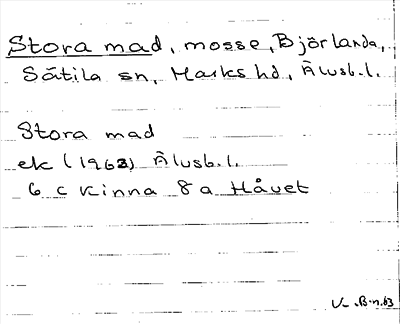 Stora mad, mosse, Björlanda,
Sätila sn, Marks hd, Älvsb. l.
Stora mad
ek (1963) Älvsb. l.
6 c Kinna 8 a Håvet